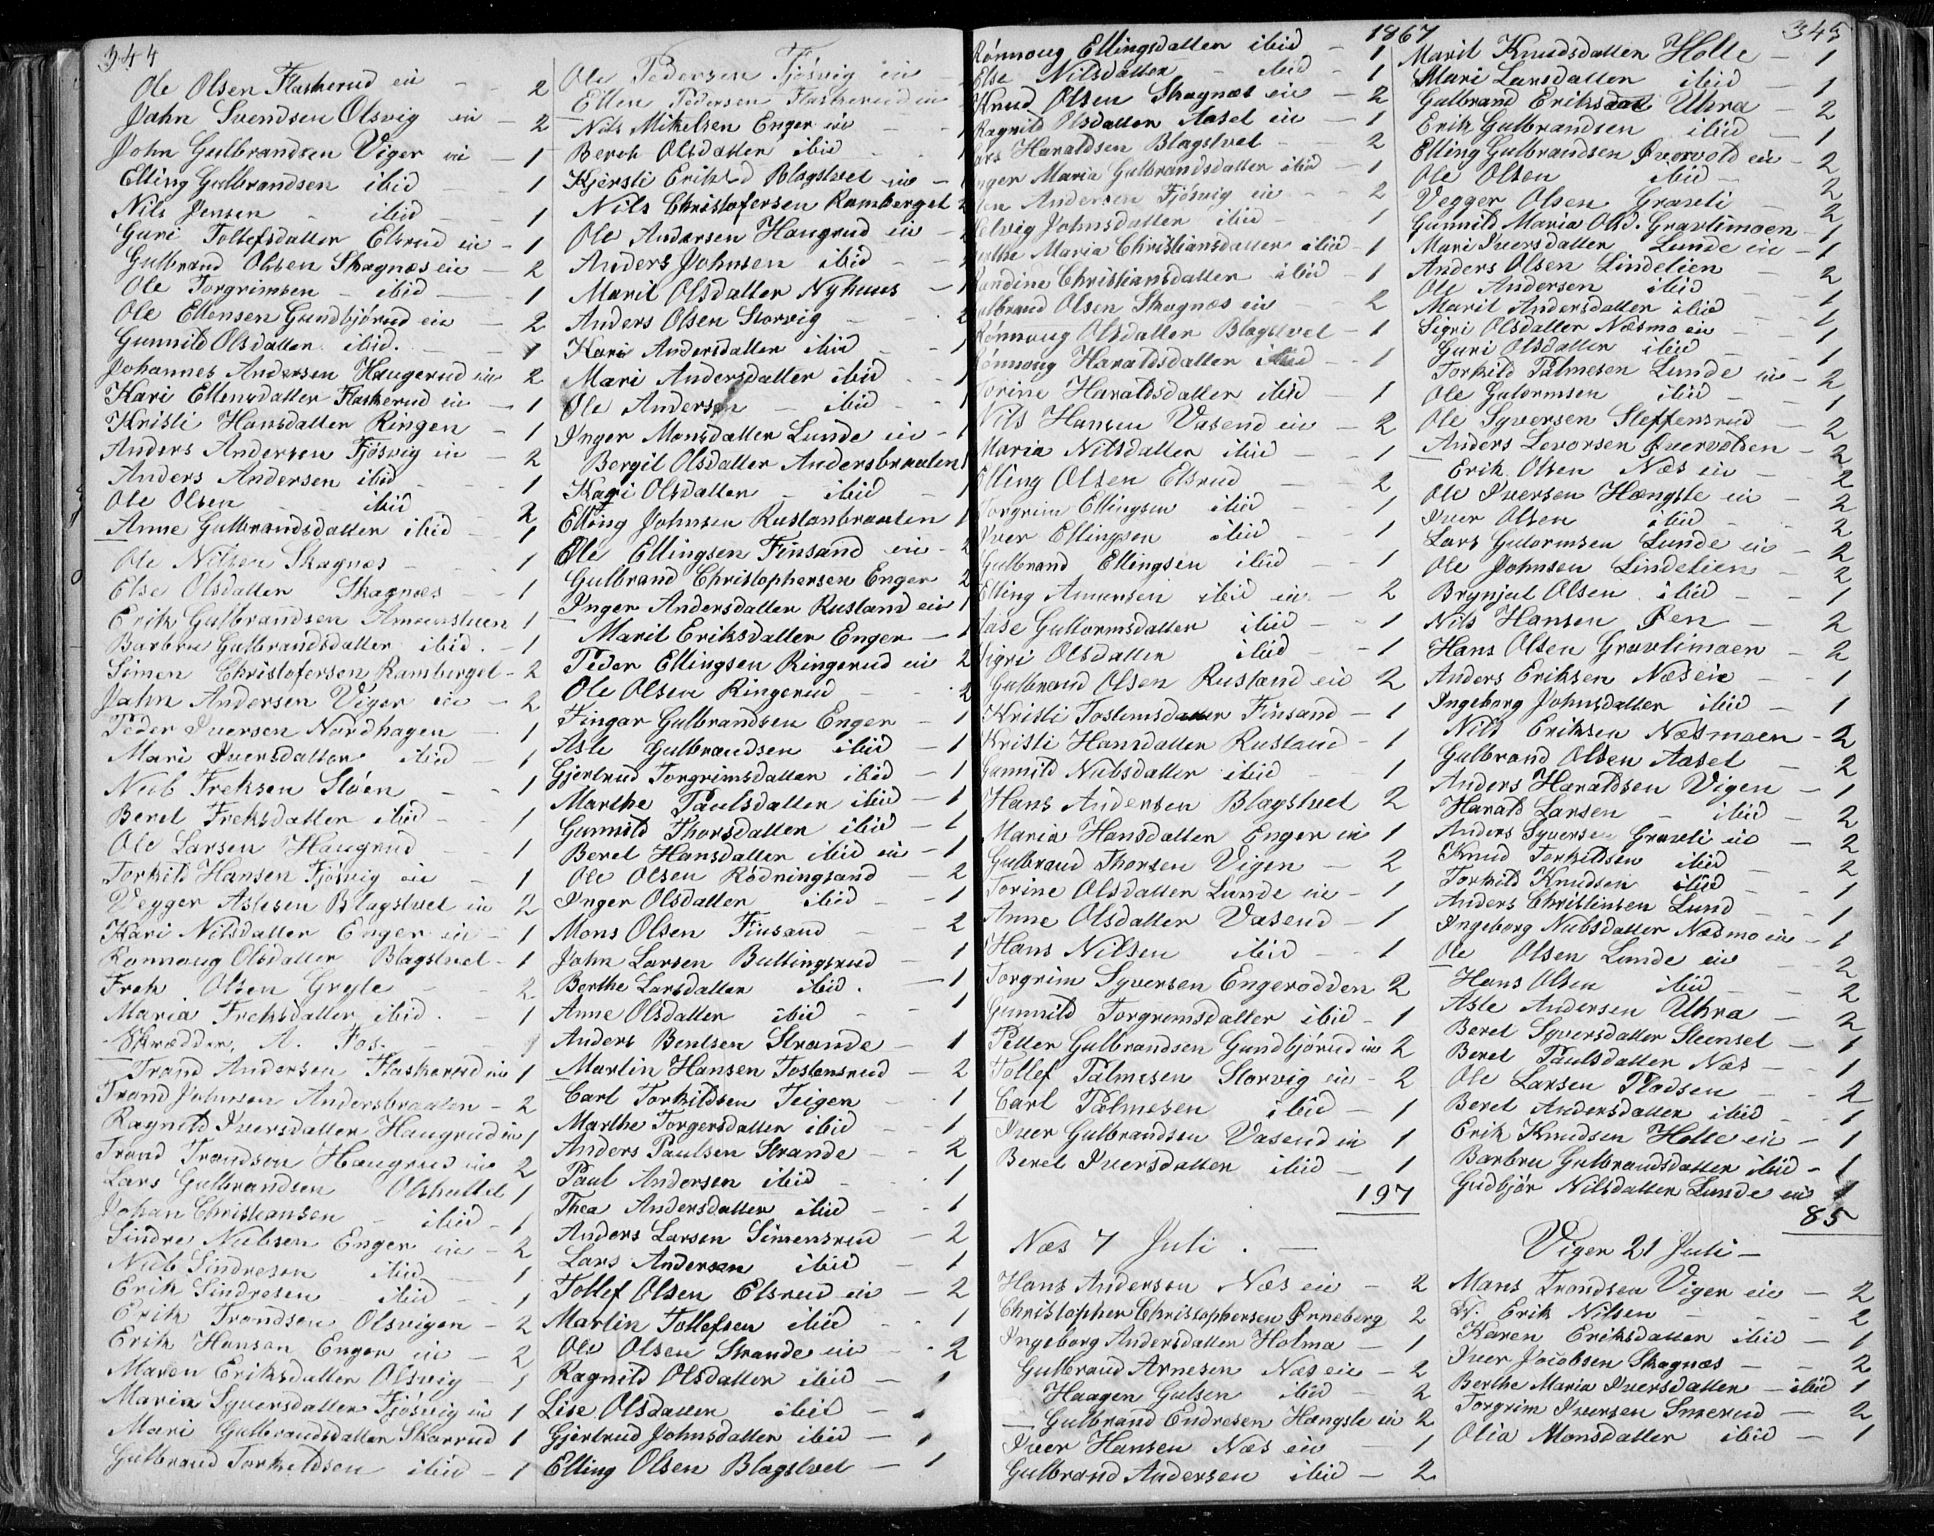 344
Ole Olsen Flaskerud eie - - 2
Jahn Svendsen Olsvig eie - 2
John Gulbrandsen Viger eie - 1
Elling Gulbrandsen ibid - - 1
Nils Jensen - ibid - - 1
Guri Tollefsdatter Elsrud eie - 1
Gulbrand Olsen Skagnæs eie - 2
Ole Torgrimsen - ibid - 1
Ole Ellensen Gundbjørud eie - 2
Gunnild Olsdatter ibid. - - 1
Johannes Andersen Haugerud eie 2
Kari Ellensdatter Flaskerud eie - 1
Kristi Hansdatter Ringen - 1
Anders Andersen Fjøsvig eie - 2
Anders Andersen ibid - - 1
Ole Olsen ibid - 2
Anne Gulbrandsdatter ibid - 1
Ole Nilsen Skagnæs - - 1
Else Olsdatter Skagnæs - - 1
Erik Gulbrandsen 1
Barbru Gulbrandsdatter ibid. - 1
Simen Christofersen Ramberget - 2
Jahn Andersen Viger eie - 2
Peder Iversen Nordhagen - 1
Mari Iversdatter ibid - 1
Nub Freksen Støen - - 1
Beret Freksdatter ibid - - 1
Ole Larsen Haugrud - - 1
Torkild Hansen Fjøsvig eie - 1
Vegger Aslesen Blagstvet eie 2
Kari Nilsdatter Enger eie - 1
Rønnoug Olsdatter Blagstvet - 1
Frek Olsen Gryte - - 2
Maria Freksdatter ibid. - - 1
Skrædder A. Fos. - - 1
Trond Andersen Flaskerud eie 1
Trond Johnsen Andersbraaten - 2
Ragnild Iversdatter Haugrud eie 1
Trond Trondsen Haugrud eie 2
Lars Gulbrandsen 1
Johan Christiansen - ibid - 1
Sindre Nubsen Enger eie - 2
Nub Sindresen ibid - 1
Erik Sindresen - ibid - 1
Erik Trondsen Olsvigen - 2
Erik Hansen Enger eie - 2
Maren Eriksdatter Olsvig - 1
Maria Syversdatter Fjøsvig eie 1
Mari Gulbrandsdatter Skarrud 1
Gulbrand Torkildsen ibid - 1
Ole Pedersen Fjøsvig eie -
Ellen Pedersen Flaskerud eie
Nils Mikelsen Enger eie - - 1
Bereth Olsdatter ibid - 1
Kjersti Eriksd Blagstvet eie - 1
Nils Christofersen Ramberget 2
Ole Andersen Haugrud eie - 2
Anders Johnsen ibid - -
Marit Olsdatter Nyhuus - 1
Anders Olsen Storvig - - 2
Kari Andersdatter ibid - 1
Mari Andersdatter ibid - 1
Ole Andersen - ibid - - 1
Inger Monsdatter Lunde eie - 1
Bergit Olsdatter Andersbraaten 1
Kari Olsdatter - ibid - 1
Elling Johnsen Ruslanbraaten 1
Ole Ellingsen Finsand eie - 2
Gulbrand Christophersen Enger 2
Inger Andersdatter Rusland eie 1
Marit Eriksdatter Enger - 1
Peder Ellingsen Ringerud eie 2
Ole Olsen Ringerud - - 2
Fingar Gulbrandsen Enger - 1
Asle Gulbrandsen ibid - 1
Gjertrud Torgrimsdatter ibid - 1
Marthe Paulsdatter ibid - 1
Gunnild Thorsdatter ibid - 1
Beret Hansdatter ibid eie - 1
Ole Olsen Rødningsand - 2
Inger Olsdatter ibid - - 1
Mons Olsen Finsand - - 2
John Larsen Bullingsrud - 1
Berthe Larsdatter ibid. - 1
Anne Olsdatter ibid - - 1
Anders Bentsen Strande - 1
Martin Hansen Tostensrud - 2
Carl Torkildsen Teigen - - 1
Marthe Torgersdatter ibid - 1
Anders Paulsen Strande - - 2
Paul Andersen ibid - - 1
Thea Andersdatter ibid - - 1
Anders Larsen Simensrud - 2
Lars Andersen ibid - 1
Tollef Olsen Elsrud eie - 2
Martin Tollefsen ibid - - 1
Ole Olsen Strande eie - - 2
Ragnild Olsdatter ibid - 1
Lise Olsdatter ibid - 1
Gjertrud Johnsdatter ibid - 1
Elling Olsen Blagstvet - 1
1867
Rønnoug Ellingsdatter ibid - 1
Else Nilsdatter - ibid - 1
Knud Olsen Skagnæs eie - 2
Ragnild Olsdatter Aaset eie - 1
Lars Haraldsen Blagstvet - - 2
Inger Maria Gulbrandsdatter ibid - 1
Andersen Fjøsvig eie - - 2
Johnsdatter ibid - - 1
Marthe Maria Christiansdatter ibid - 1
Randine Christiansdatter ibid - 1
Gulbrand Olsen Skagnæs eie - 2
Rønnoug Olsdatter Blagstvet - 1
Rønnoug Haraldsdatter ibid - - 1
Torine Haraldsdatter ibid - 1
Nils Hansen Vasend eie - 2
Maria Nilsdatter ibid - - 1
Elling Olsen Elsrud - 2
Torgrim Ellingsen ibid - - 1
Iver Ellingsen ibid - - 1
Gulbrand Ellingsen ibid - - 1
Elling Amunsen ibid eie - 2
Aase Guttormsdatter ibid - - 1
Sigri Olsdatter ibid - - 1
Gulbrand Olsen Rusland eie 2
Kristi Tostensdatter Finsand - 1
Kristi Hansdatter Rusland - 1
Gunnild Nubsdatter ibid - - 1
Hans Andersen Blagstvet 2
Maria Hansdatter Enger eie 1
Gulbrand Thorsen Vigen - 2
Torine Olsdatter Lunde eie - 1
Anne Olsdatter Vasend - 1
Hans Nilsen ibid - 1
Torgrim Syversen Engerodden 2
Gunnild Torgrimsdatter ibid - 1
Petter Gulbrandsen Gundbjørud eie 2
Tollef Palmesen Storvig eie - 2
Carl Palmesen ibid - 1
Iver Gulbrandsen Vasend eie 1
Beret Iversdatter ibid - 1
197
Næs 7 Juli. -
Hans Andersen Næs eie - 2
Christopher Christophersen Ørneberg 2
Ingeborg Andersdatter Holma - 1
Gulbrand Arnesen Næs eie - 2
Haagen Gulsen ibid - 2
Gulbrand Endresen Hængsle eie 2
Iver Hansen Næs eie - 1
Gulbrand Andersen ibid - 2
345
Marit Knudsdatter Holte - 1
Mari Larsdatter ibid - 1
Gulbrand Eriksen Uhra - 2
Erik Gulbrandsen ibid - 1
Elling Gulbrandsen Iversvold eie - 2
Ole Olsen ibid - 2
Vegger Olsen Gravli - 2
Gunnild Maria Olsd. Gravlimoen - 1
Mari Iversdatter Lunde eie - 1
Anders Olsen Lindelien 2
Ole Andersen ibid - - 1
Marit Andersdatter ibid - 1
Sigri Olsdatter Næsmo eie - 1
Guri Olsdatter ibid - 1
Torkild Palmesen Lunde eie - 2
Ole Gutormsen ibid - 1
Ole Syversen Steffensrud - 2
Anders Levorsen - 2
Erik Olsen Næs eie - 2
Ole Iversen Hængsle eie - 2
Iver Olsen ibid - - 2
Lars Gutormsen Lunde eie - 2
Ole Johnsen Lindelien - 2
Brynjul Olsen ibid - - 1
Nils Hansen Øen - 2
Hans Olsen Gravlimoen - 2
Anders Eriksen Næs eie - - 1
Ingeborg Johnsdatter ibid - 1
Nils Eriksen Næsmoen - 2
Gulbrand Olsen Aaset - 2
Anders Haraldsen Vigen - 1
Harald Larsen - ibid - 2
Anders Syversen Gravli eie - 2
Knud Torkildsen ibid - 2
Torkild Knudsen ibid - - 1
Anders Christensen Lund - - 1
Ingeborg Nubsdatter Næsmo eie - 1
Ole Olsen Lunde eie 2
Hans Olsen ibid - - 2
Asle Andersen Uhra - 2
Beret Syversdatter Steenset - 1
Beret Paulsdatter Næs - - 1
Ole Larsen Plodsen - 2
Beret Andersdatter ibid - - 1
Erik Knudsen Holte eie - 1
Barbru Gulbrandsdatter ibid - 1
Gudbjør Nilsdatter Lunde eie 1
85
Viger 21 Juli -
Mans Trondsen Viger eie - 2
Erik Nilsen - - 2
Karen Eriksdatter ibid - 1
Iver Jacobsen Skagnæs - - 2
Berthe Maria Iversdatter - ibid 1
Torgrim Iversen Smerud - 2
Olia Monsdatter ibid - 1